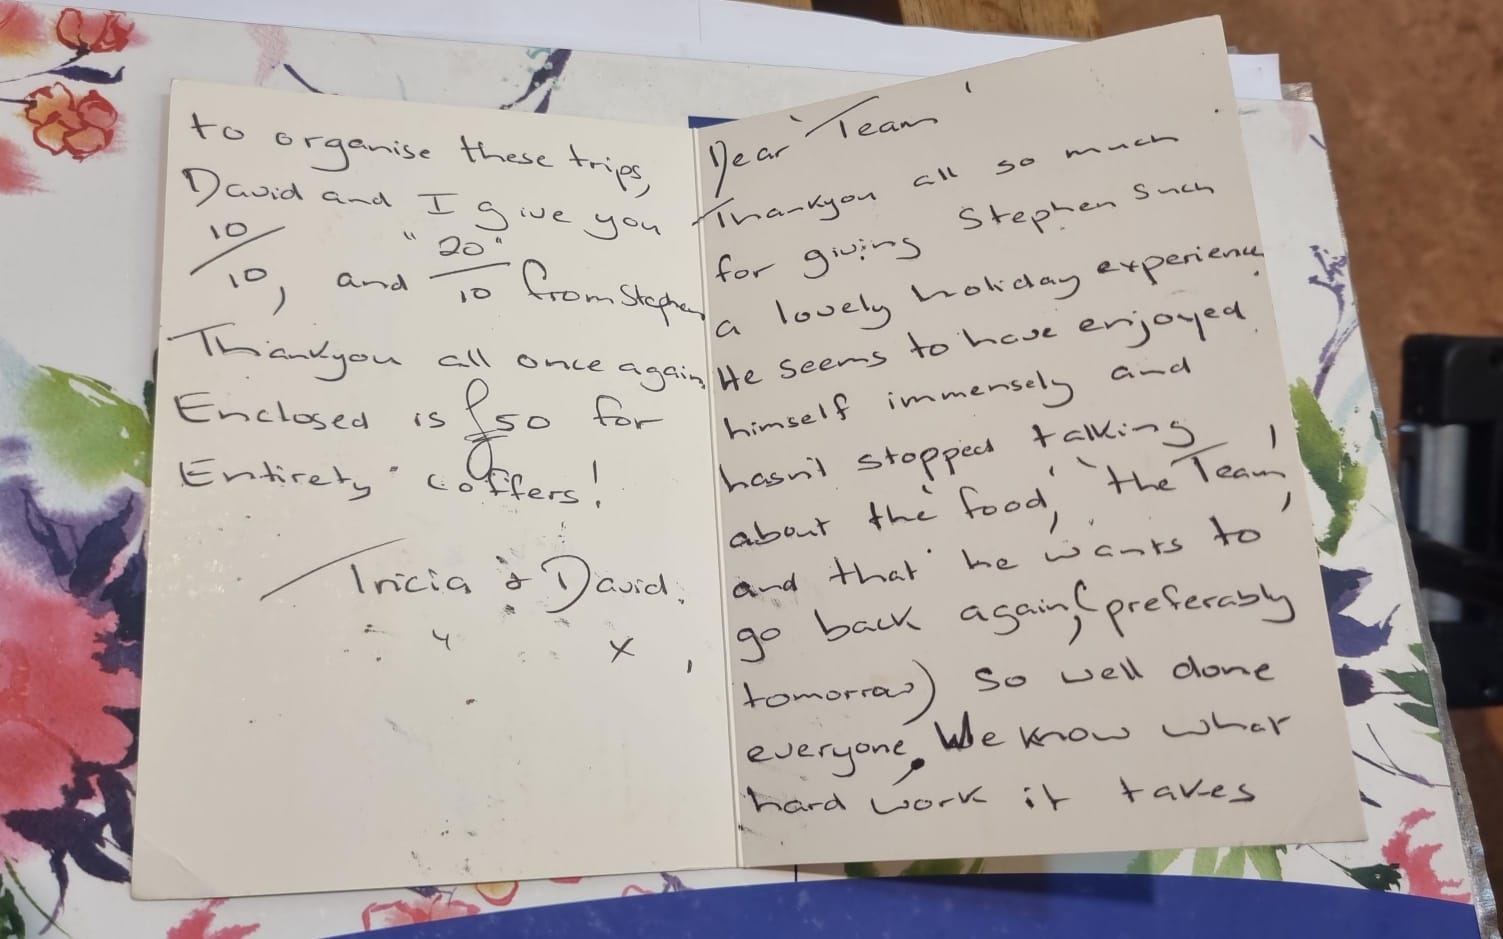 Dear 'Team'
Thankyou all so much
for giving Stephen such
a lovely holiday experience.
He seems to have enjoyed
himself immensely and
hasn't stopped talking
about the 'food', 'the Team',
and that he wants to
go back again, (preferably
tomorrow) So well done
everyone, We know what
hard work it takes
to organise these trips,
David and I give you
10/10, and "20"/10 from Stephen
Thankyou all once again,
Enclosed is £50 for
Entirety coffers!
Tricia & David.
x